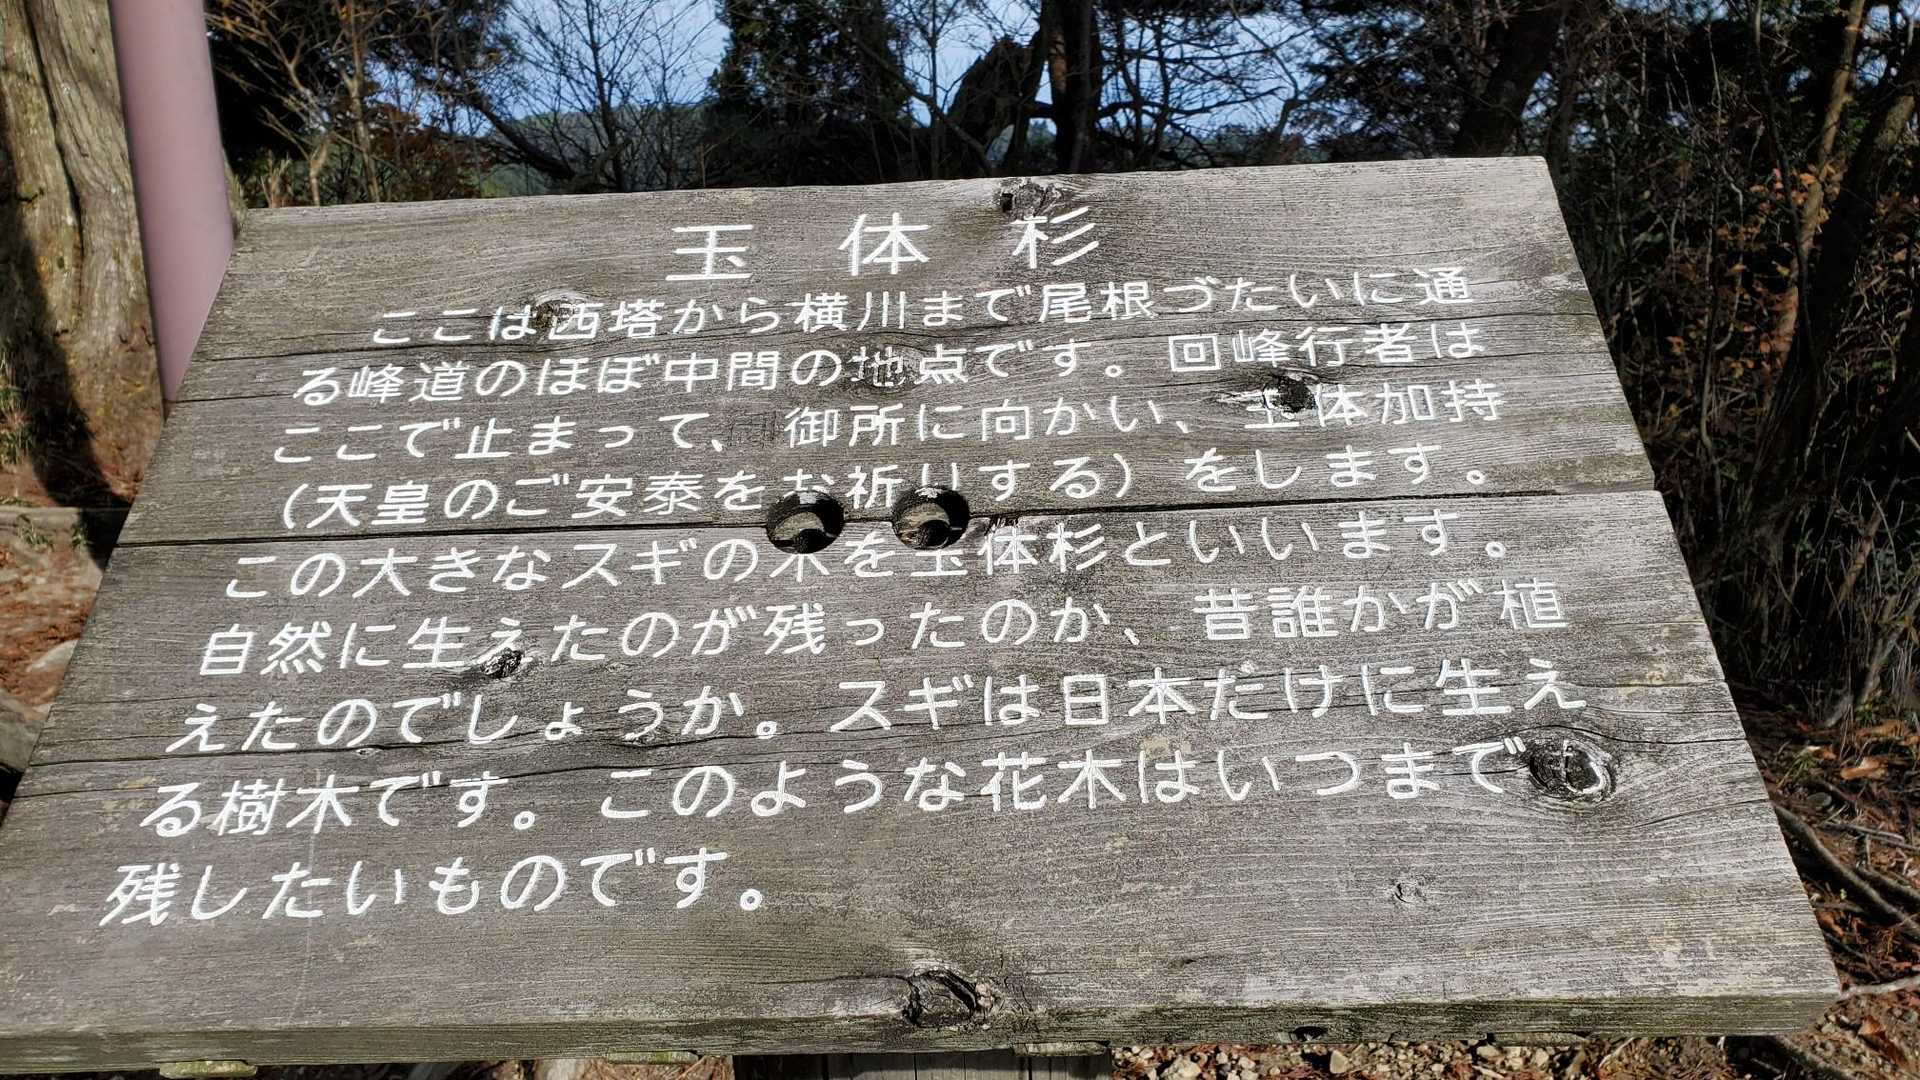 玉体杉
ここは西塔から横川まで尾根づたいに通
る峰道のほぼ中間の地点です。回峰行者は
ここで止まって、御所に向かい、玉体加持
(天皇のご安泰をお祈りする)をします。
この大きなスギの木を玉体杉といいます。
自然に生えたのが残ったのか、昔誰かが植
えたのでしょうか。スギは日本だけに生え
る樹木です。このような花木はいつまでも
残したいものです。